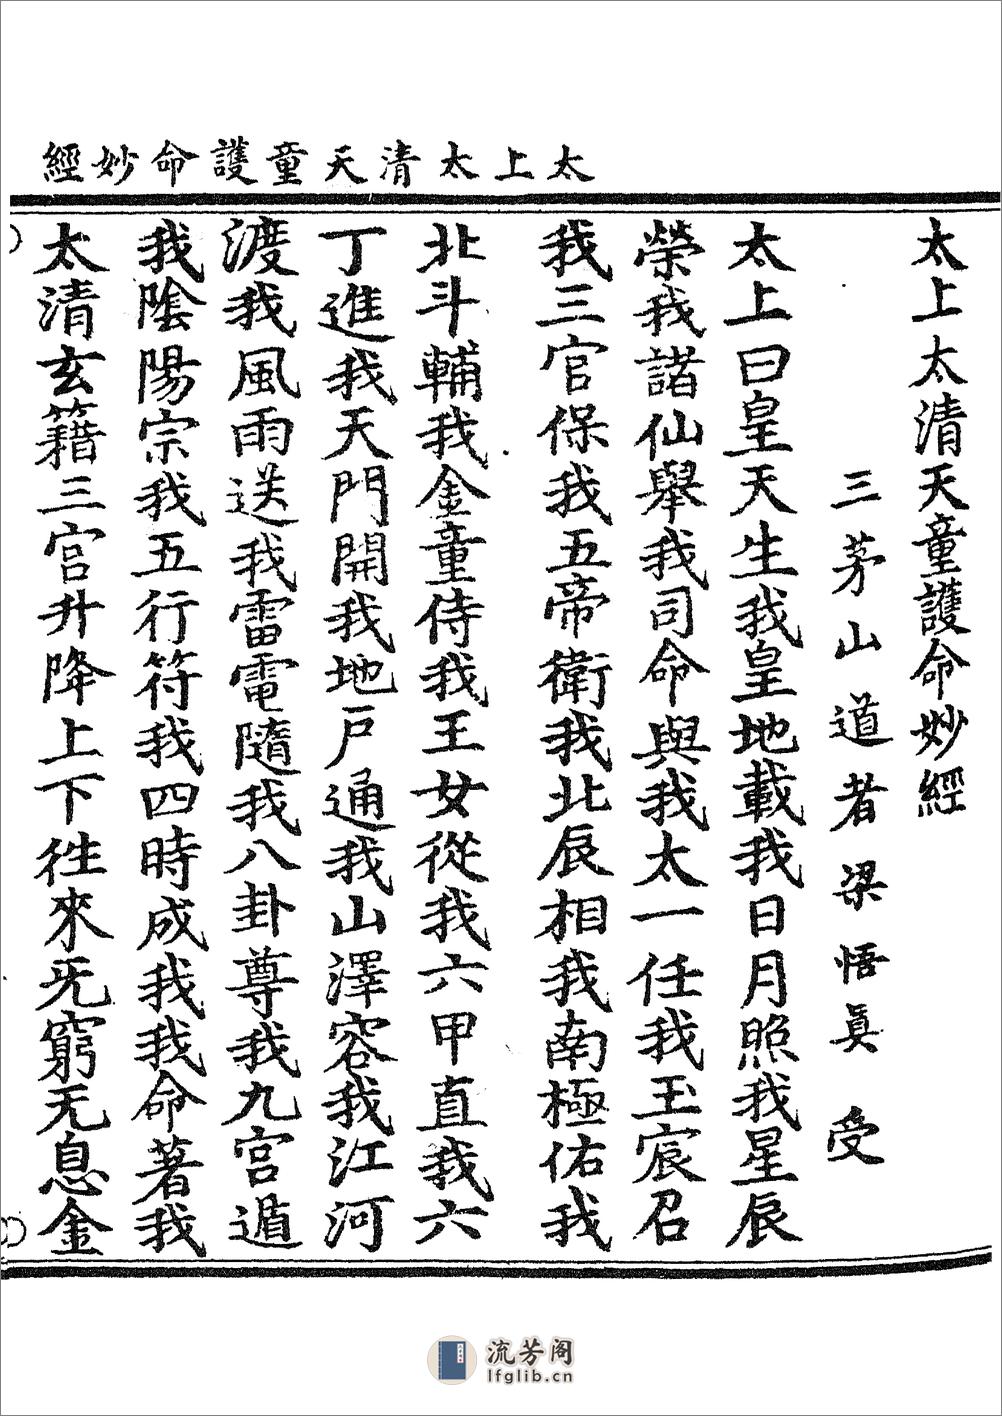 太上太清天童護命妙經
太上太清天童護命妙經
三茅山道者梁悟眞 受
太上曰皇天生我皇地載我日月照我星辰
榮我諸仙舉我司命與我太一任我玉宸召
我三官保我五帝衛我北辰相我南極佑我
北斗輔我金童侍我王女從我六甲直我六
丁進我天門開我地戸通我山澤容我江河
渡我風雨送我雷電隨我八卦尊我九宮遁
我陰陽宗我五行符我四時成我我命著我
太清玄籍三宮升降上下徃來旡窮无息金
流芳阁
lfglib.cn